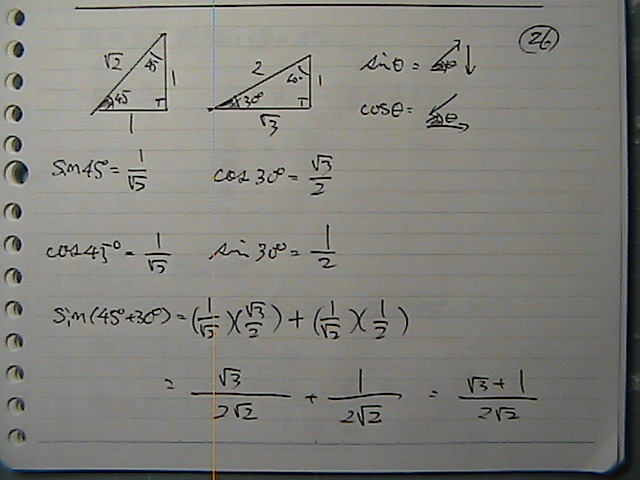 26
√2 45° 1 45 1
2 60° 1 30° √3
sinθ =
cosθ = θ
sin45° = 1/√2 cos30° = √3/2
cos45° = 1/√2 sin30° = 1/2
Sin(45°+30°) = (1/√2)(√3/2) + (1/√2)(1/2)
= √3/2√2 + 1/2√2 = √3+1/2√2